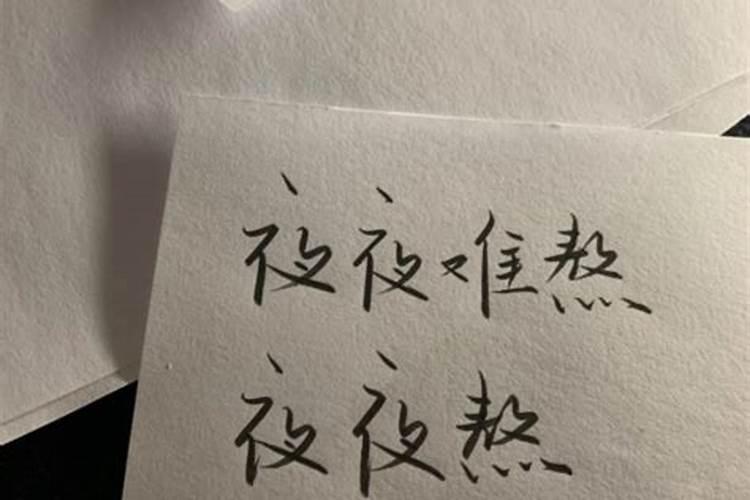 夜夜难熬
夜夜熬